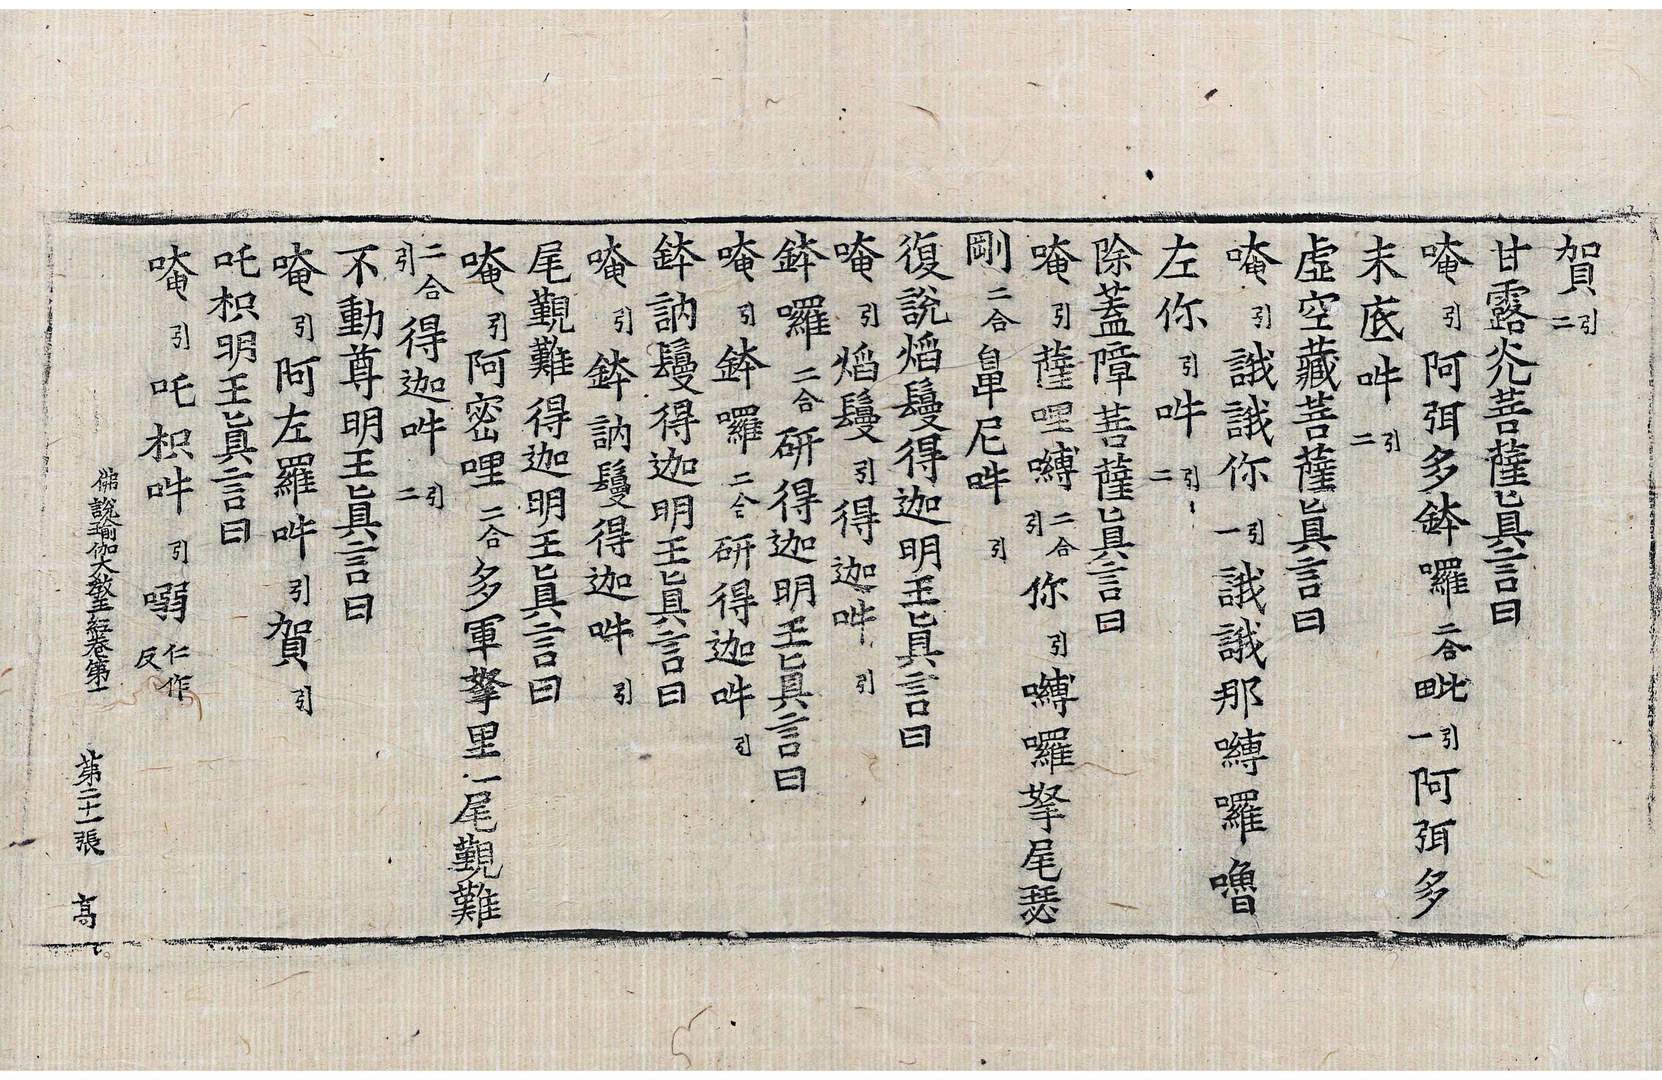 賀引二
甘露光菩薩眞言曰
唵引阿弭多鉢囉二合毗引一阿弭多
末底吽引二
虛空藏菩薩眞言曰
唵引誐誐你引一誐誐那嚩囉嚕
左你引吽引二
除蓋障菩薩眞言曰
唵引薩哩嚩二合引你引嚩囉拏尾瑟
剛二合毘尼吽引
復說熖鬘得迦明王眞言曰
唵引熖鬘引得迦吽引
鉢囉二合研得迦明王眞言曰
唵引鉢囉二合研得迦吽引
鉢訥鬘得迦明王眞言曰
唵引鉢訥鬘得迦吽引
尾覲難得迦明王眞言曰
唵引阿密哩二合多軍拏里一尾覲難
二合引得迦吽引二
不動尊明王眞言曰
唵引阿左羅吽引賀引
吒枳明王眞言曰
唵引吒枳吽引嗍仁作反
佛說瑜伽大敎王経卷第一 第二十一張 髙